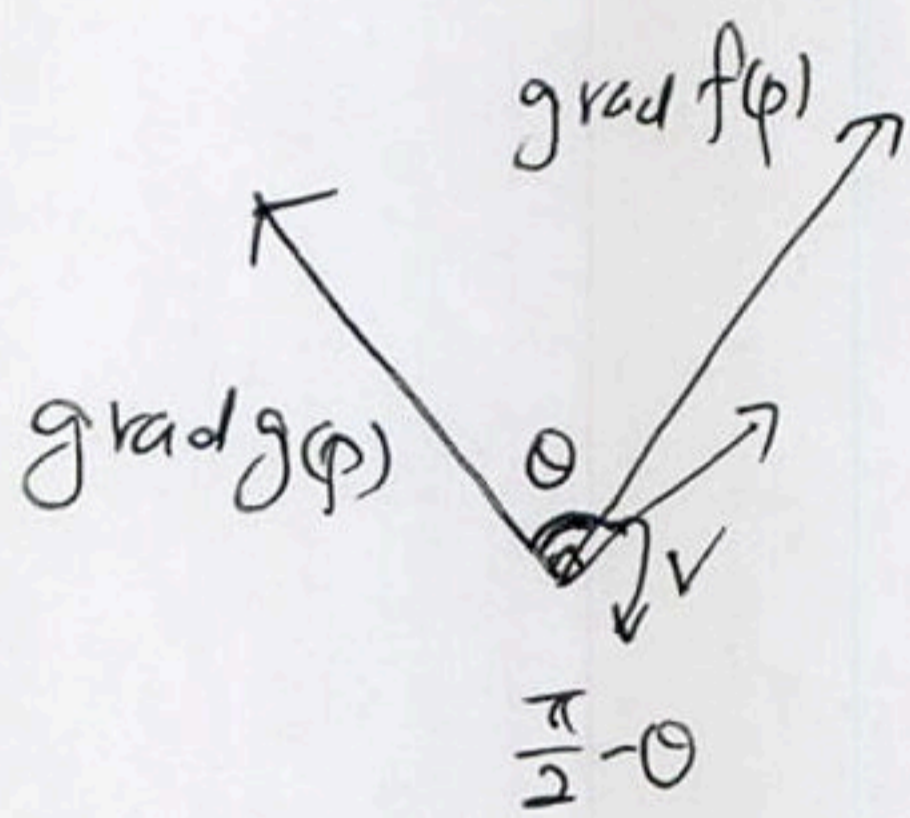 grad f(p)
grad g(p)
θ
V
π/2 - θ